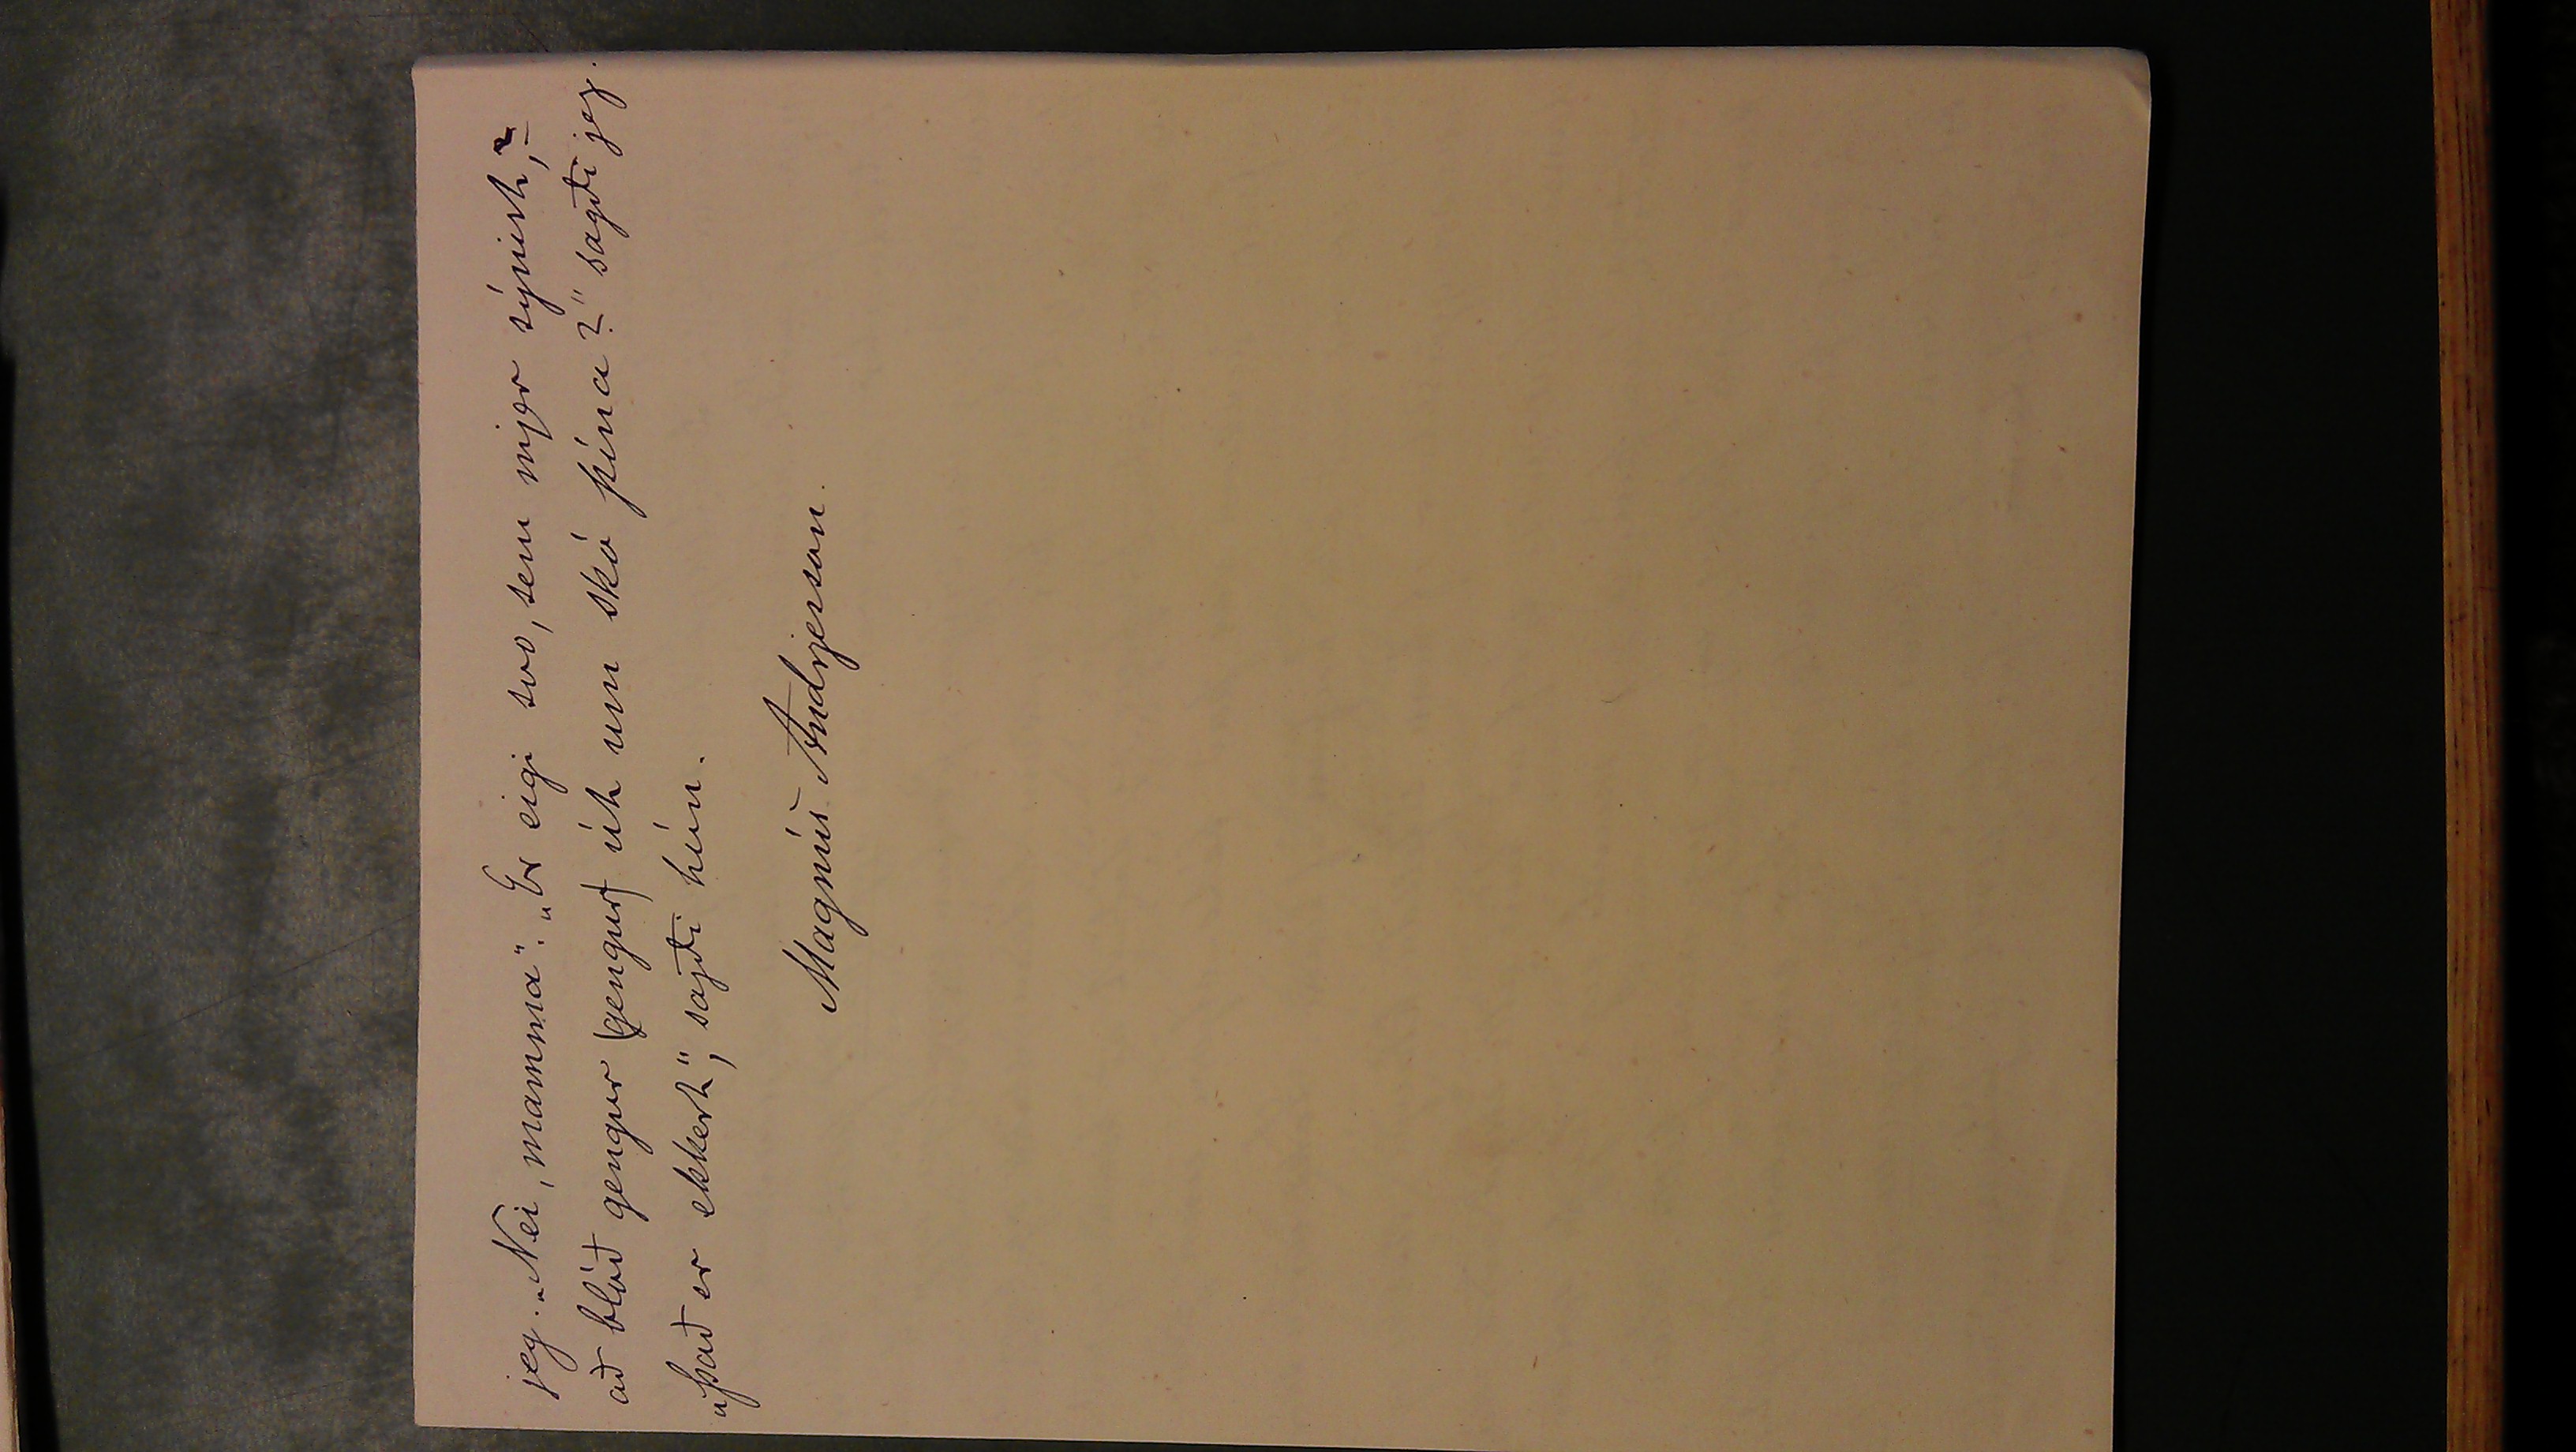 jeg. „Nei, mamma“. „Er eigi svo, sem mjer sýnist,
að blóð gengur (gengur) út um skó þína?“ sagði jeg.
„Það er ekkert“, sagði hún.
Magnús Andrjesson.